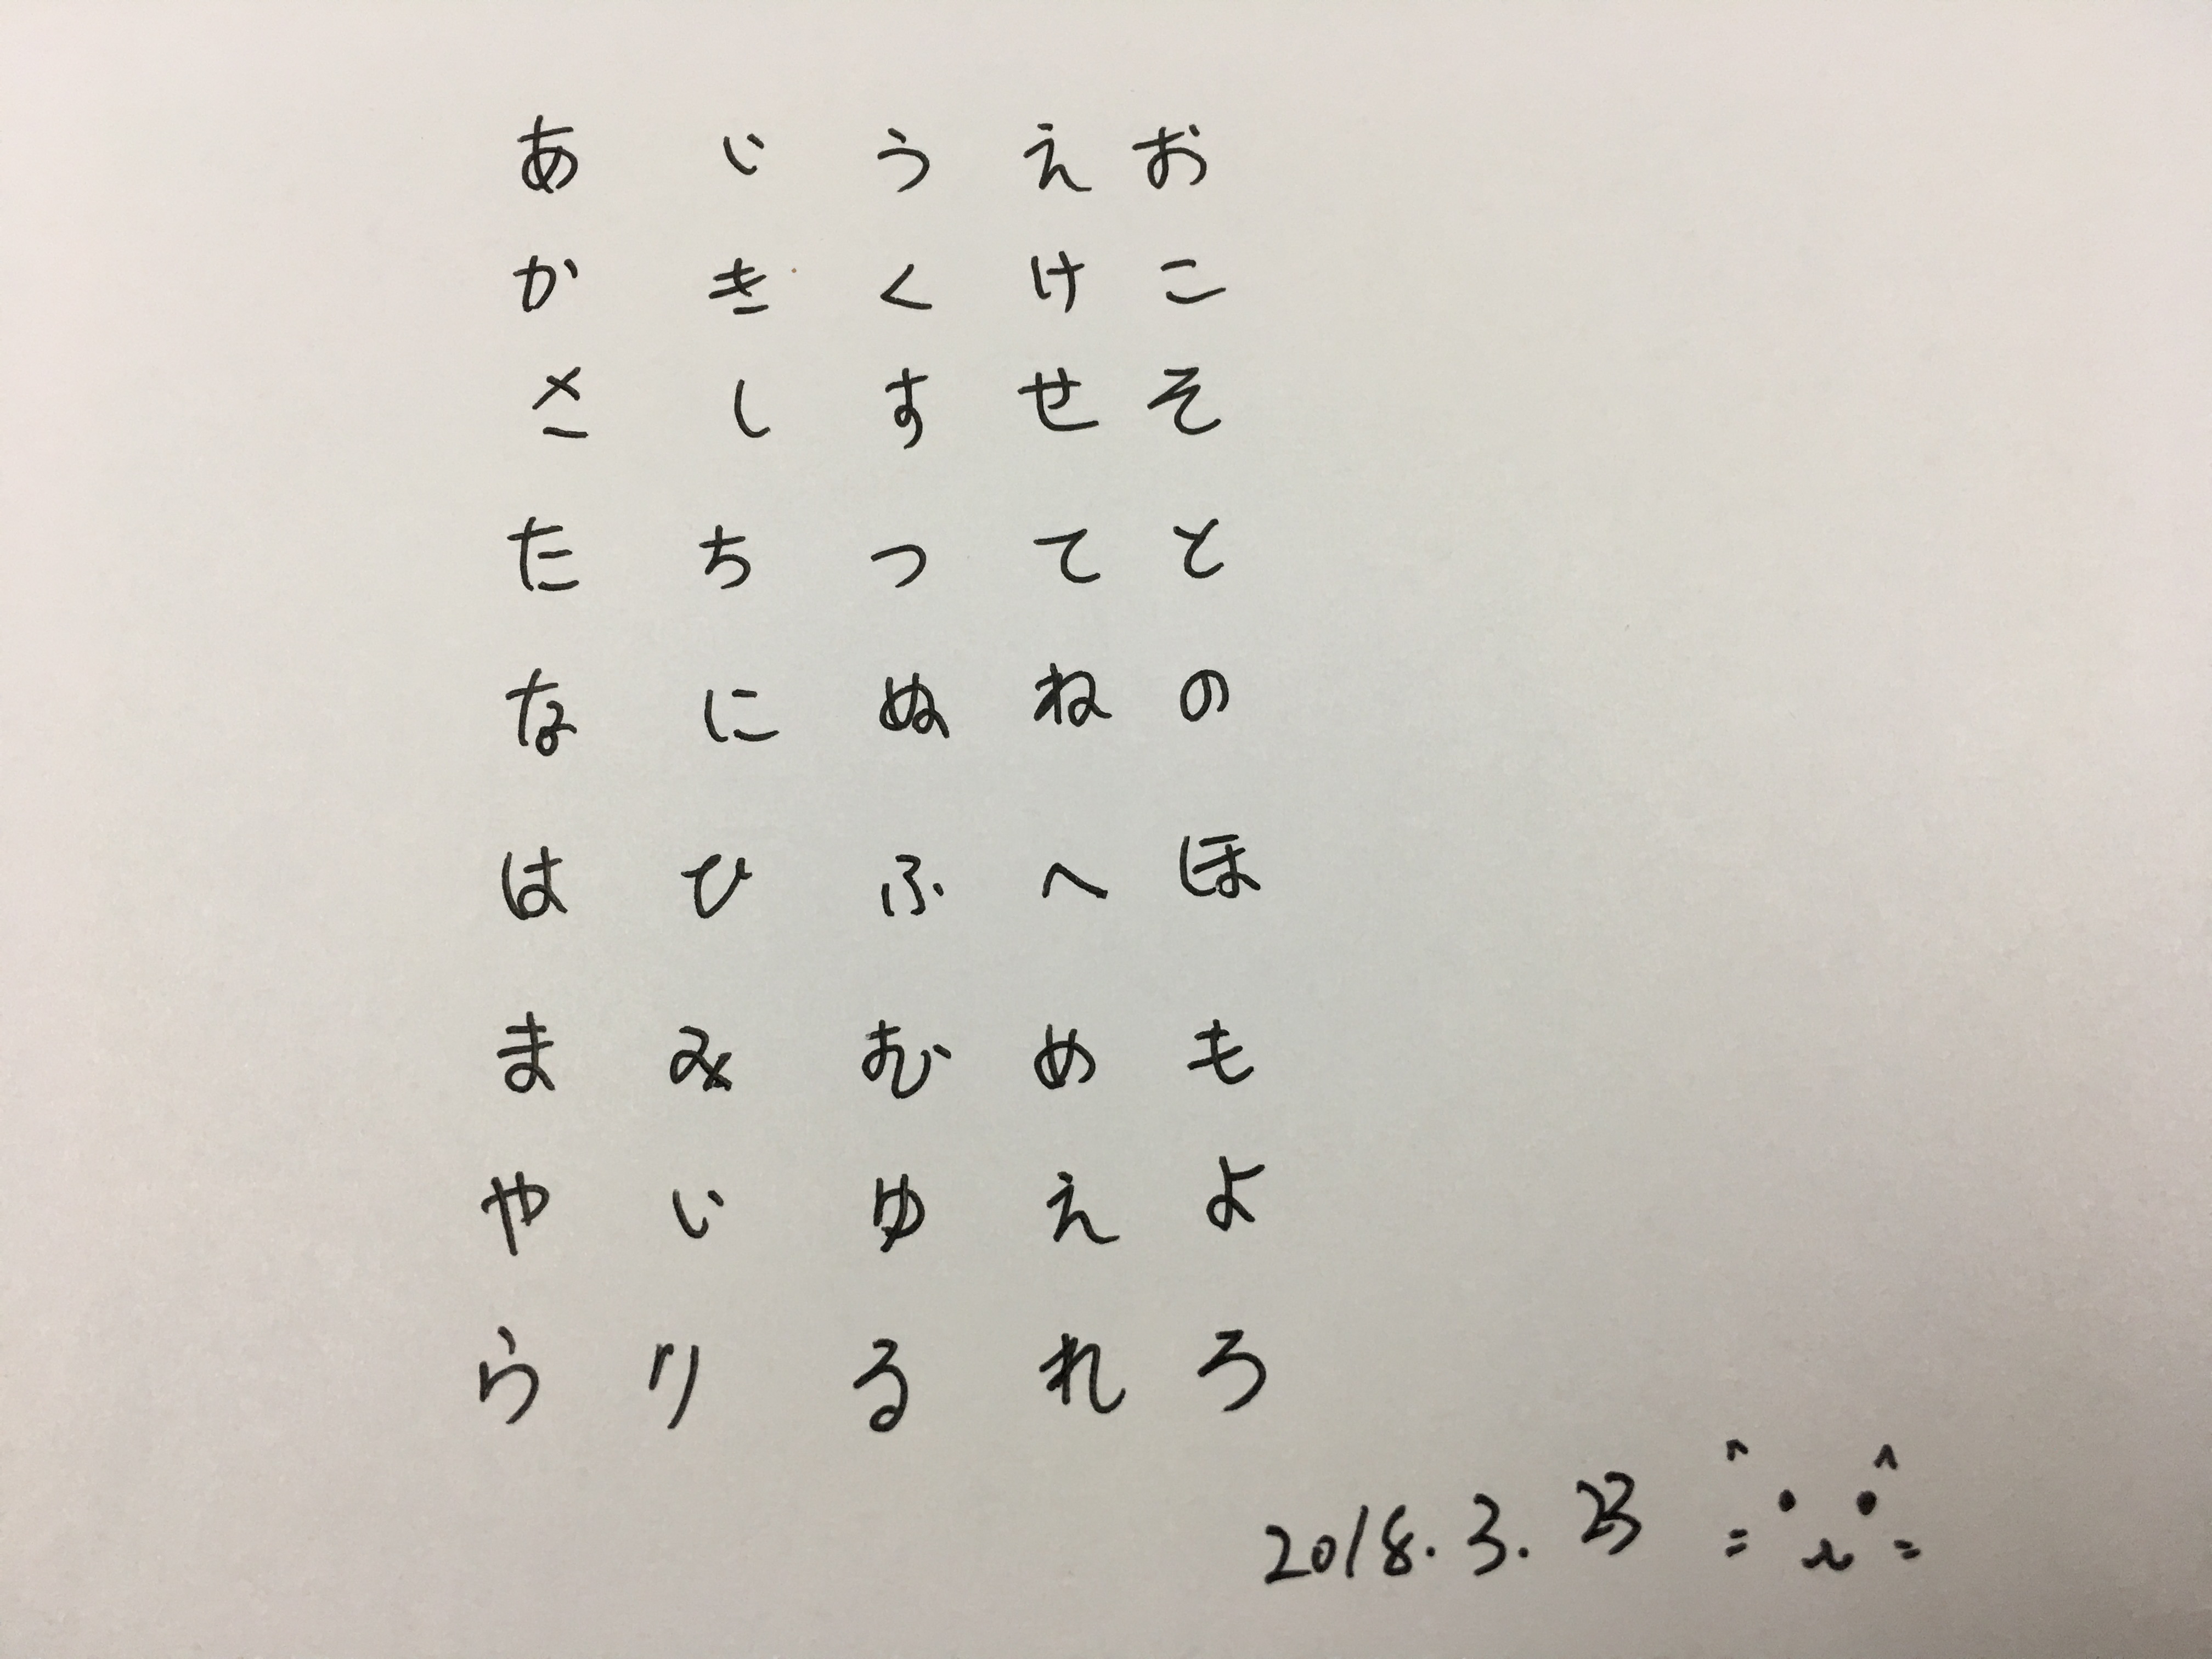 あ い う え お
か き く け こ
さ し す せ そ
た ち つ て と
な に ぬ ね の
は ひ ふ へ ほ
ま み む め も
や い ゆ え よ
ら り る れ ろ
2018.3.